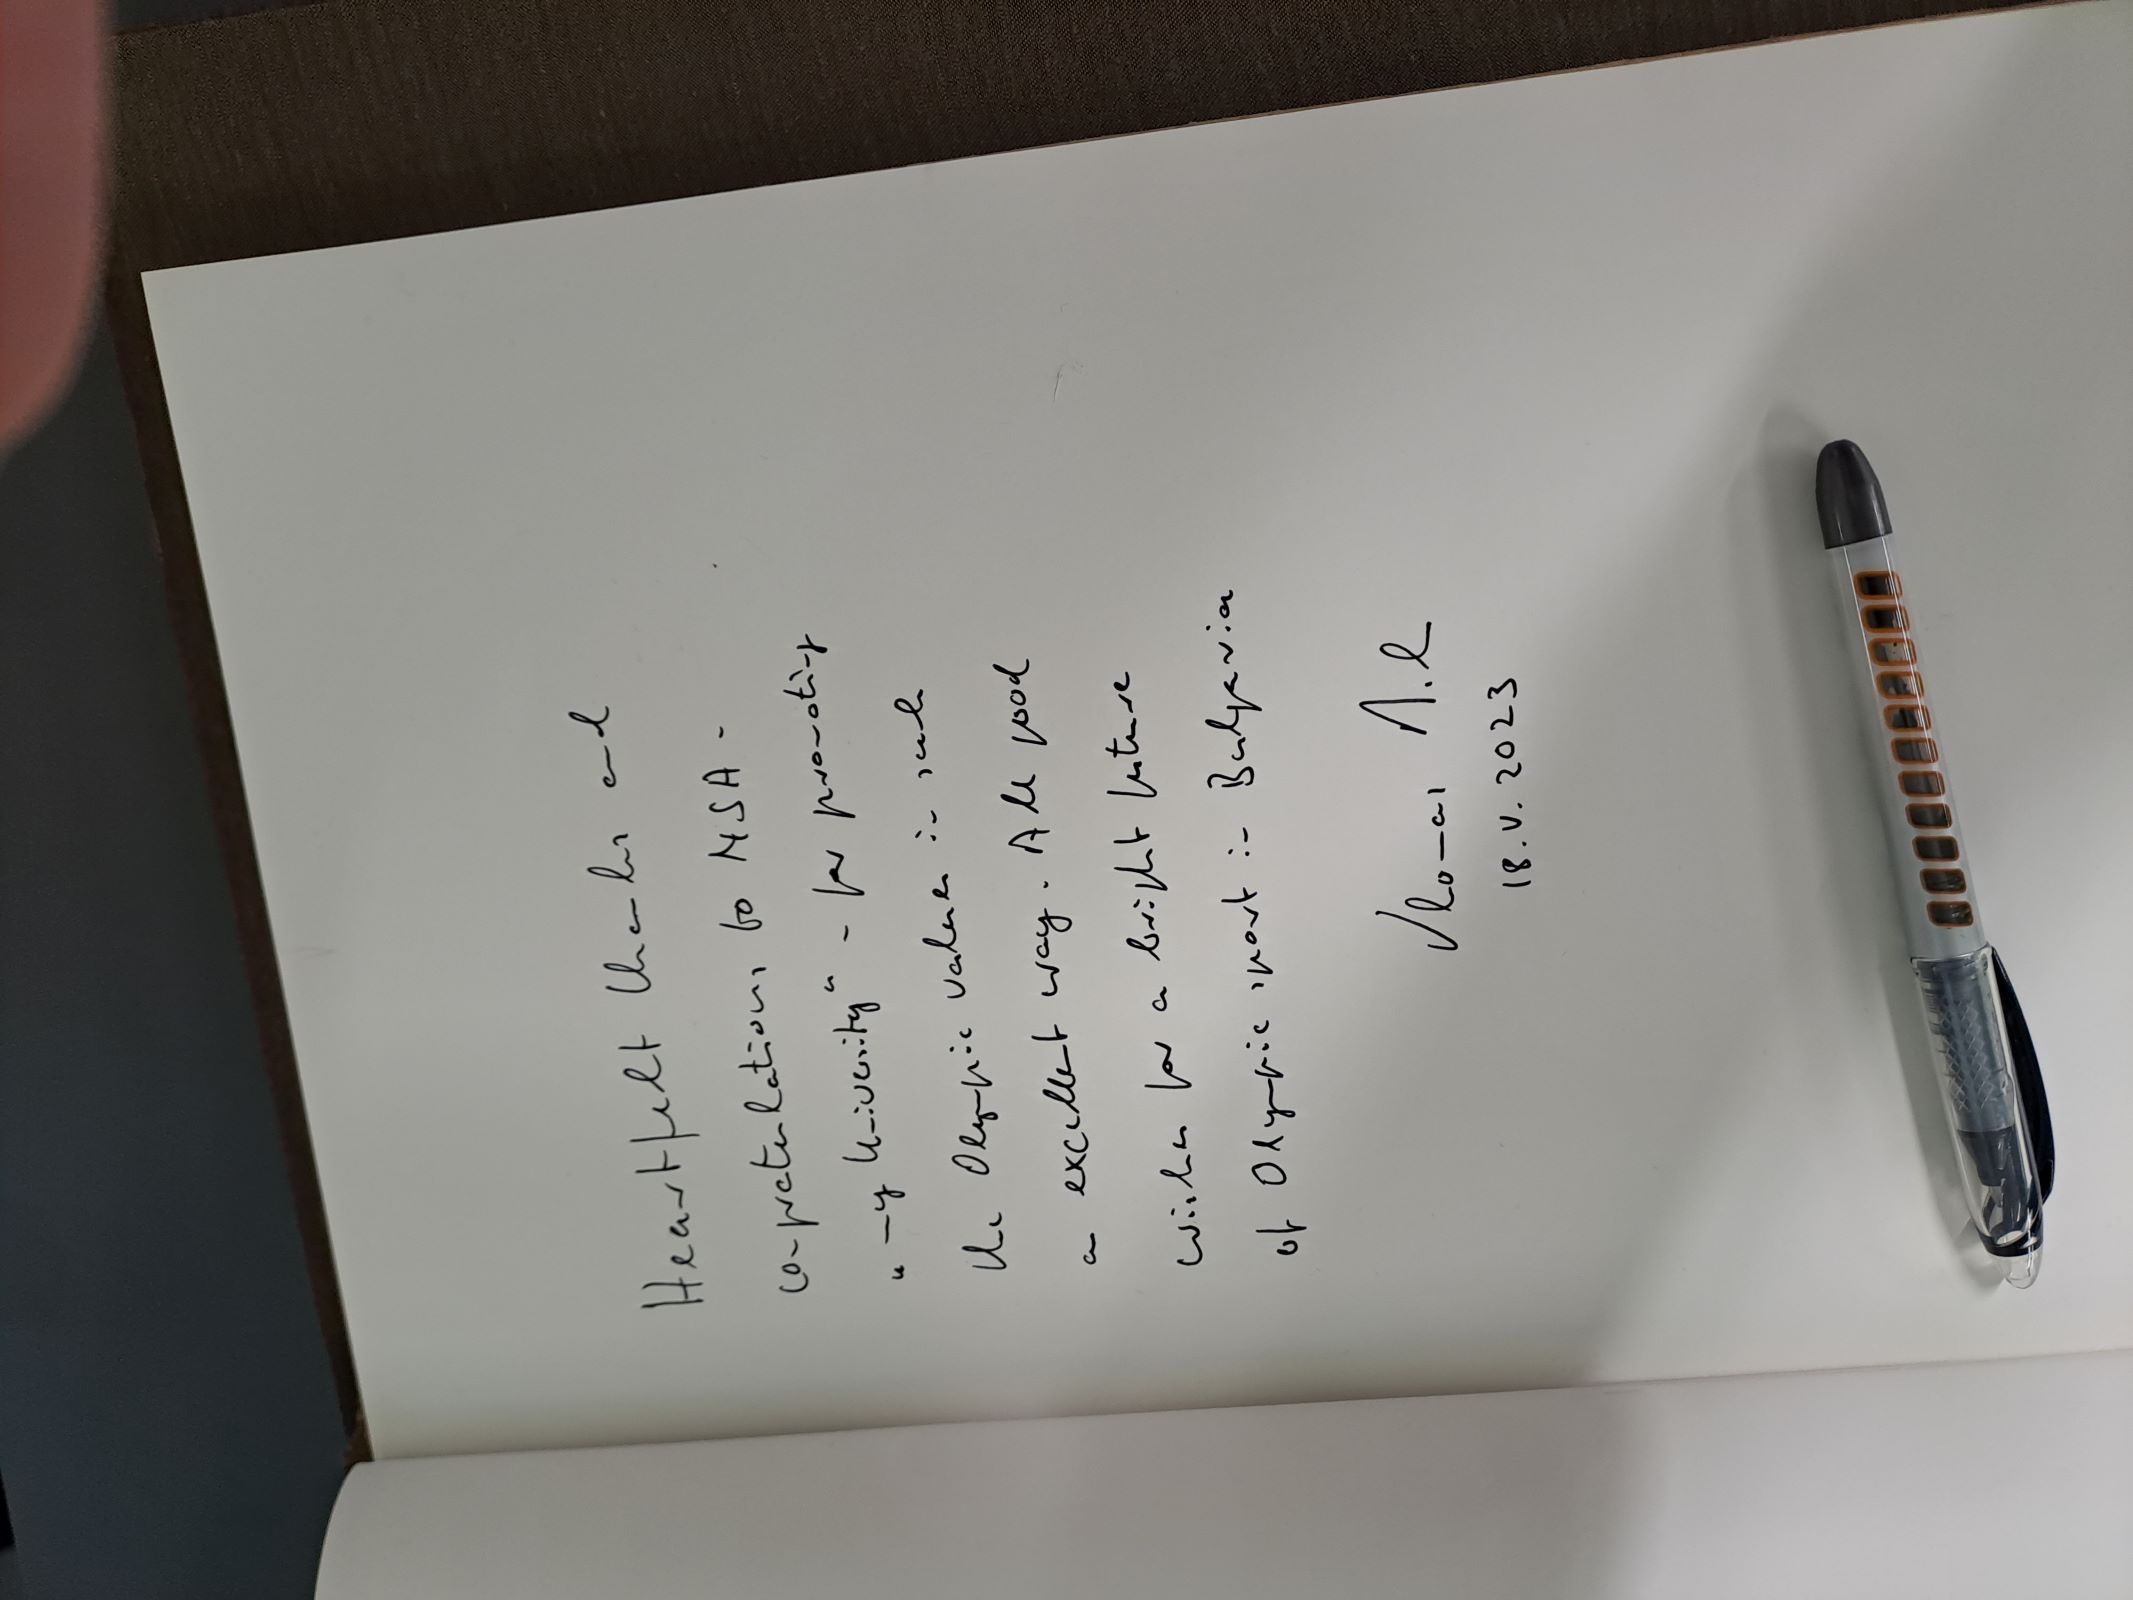 Heartfelt thanks and
congratulations to NSA -
"my University" - for promoting
the Olympic values in such
an excellent way. All good
wishes for a bright future
of Olympic sport in Bulgaria
Thomas Bach
18.V.2023